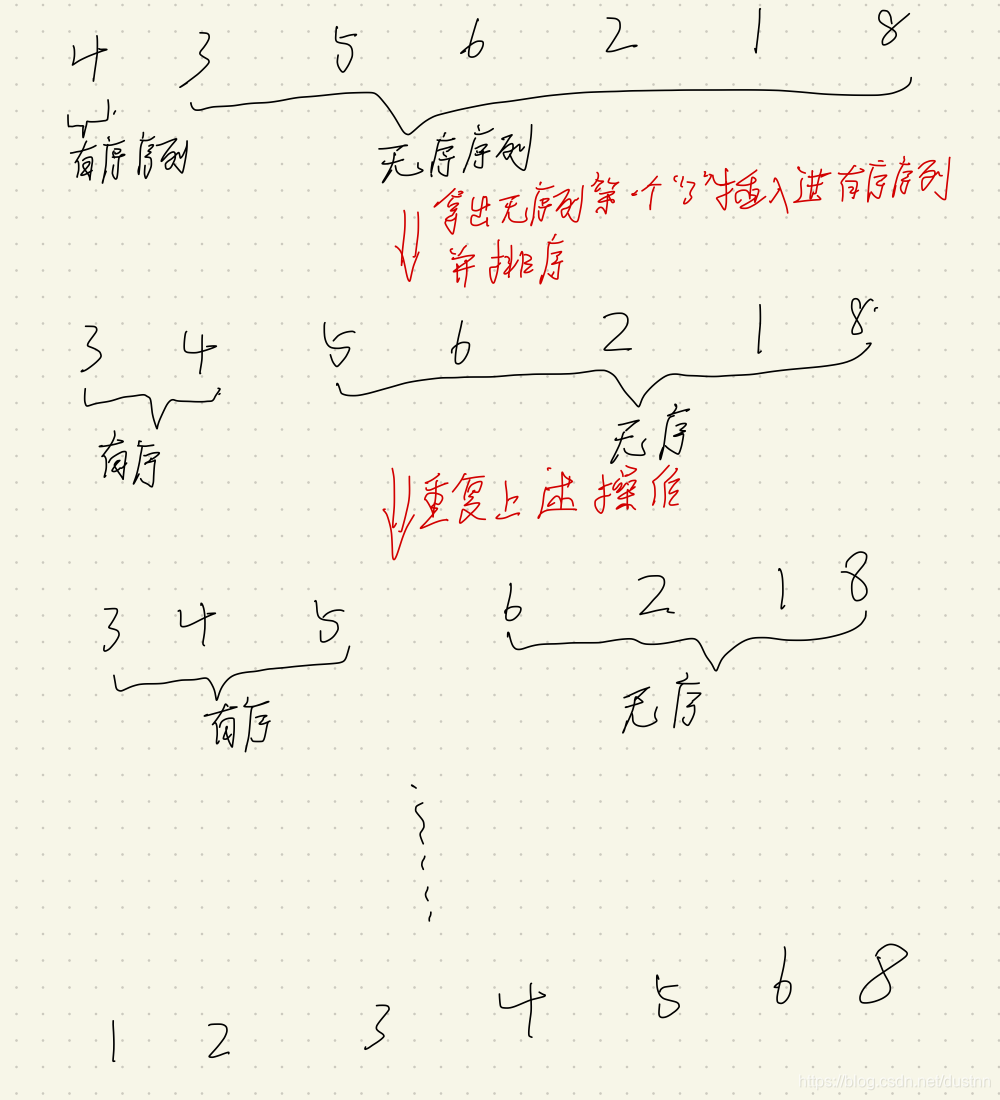 4 3 5 6 2 1 8
有序序列 无序序列
拿出无序列第一个“3”插入进有序序列
并排序
3 4 5 6 2 1 8
有序 无序
重复上述操作
3 4 5 6 2 1 8
有序 无序
1 2 3 4 5 6 8
https://blog.csdn.net/dustnn